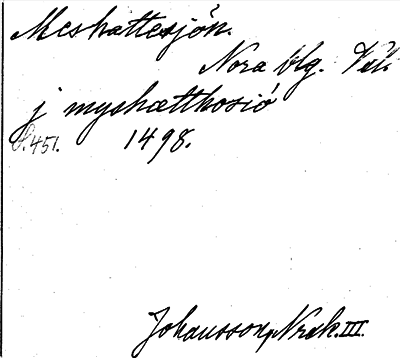 Meshattesjön.
Nora blg. Vstl.
j myshætthosiö
S.451. 1498.
Johansson, Nrak. III.